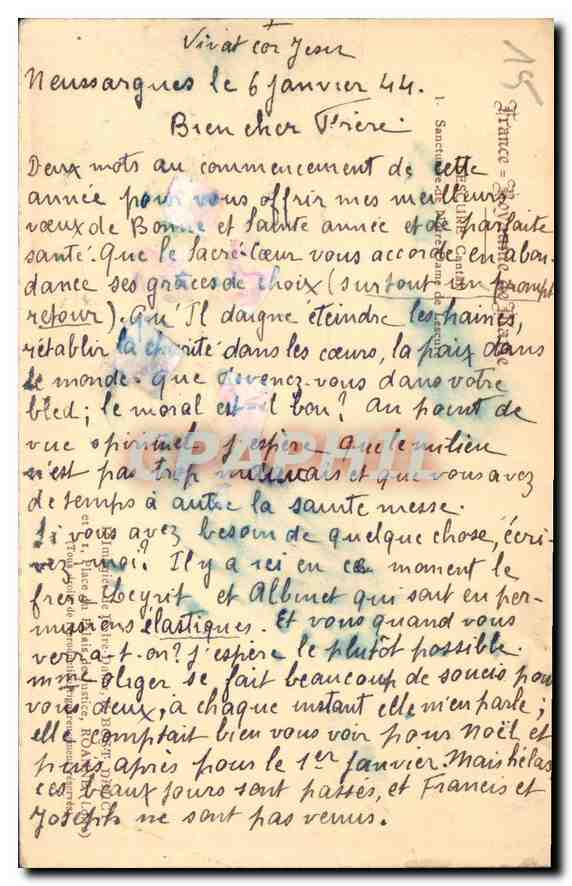 Vivat cor Jesu
Neussargues le 6 janvier 44.
Bien cher Frère
Deux mots au commencement de cette
année pour vous offrir mes meilleurs
vœux de Bonne et Sainte année et de parfaite
santé. Que le Sacré-Cœur vous accorde en abon-
dance ses grâces de choix (surtout un prompt
retour). Qu'Il daigne éteindre les haines,
rétablir la charité dans les cœurs, la paix dans
le monde. Que devenez-vous dans votre
bled; le moral est-il bon? Au point de
vue spirituel j'espère que le milieu
n'est pas trop mauvais et que vous avez
de temps à autre la sainte messe.
Si vous avez besoin de quelque chose, écri-
vez moi? Il y a ici en ce moment le
frère Leyrit et Albinet qui sont en per-
missions élastiques. Et vous quand vous
verra-t-on? j'espère le plutôt possible.
Mme Oliger se fait beaucoup de soucis pour
vous deux, à chaque instant elle m'en parle;
elle comptait bien vous voir pour Noël et
puis après pour le 1er Janvier. Mais hélas
ces beaux jours sont passés, et Francis et
Joseph ne sont pas venus.
15
1. Sanctuaire de Notre-Dame de Lescure
CPARAMA